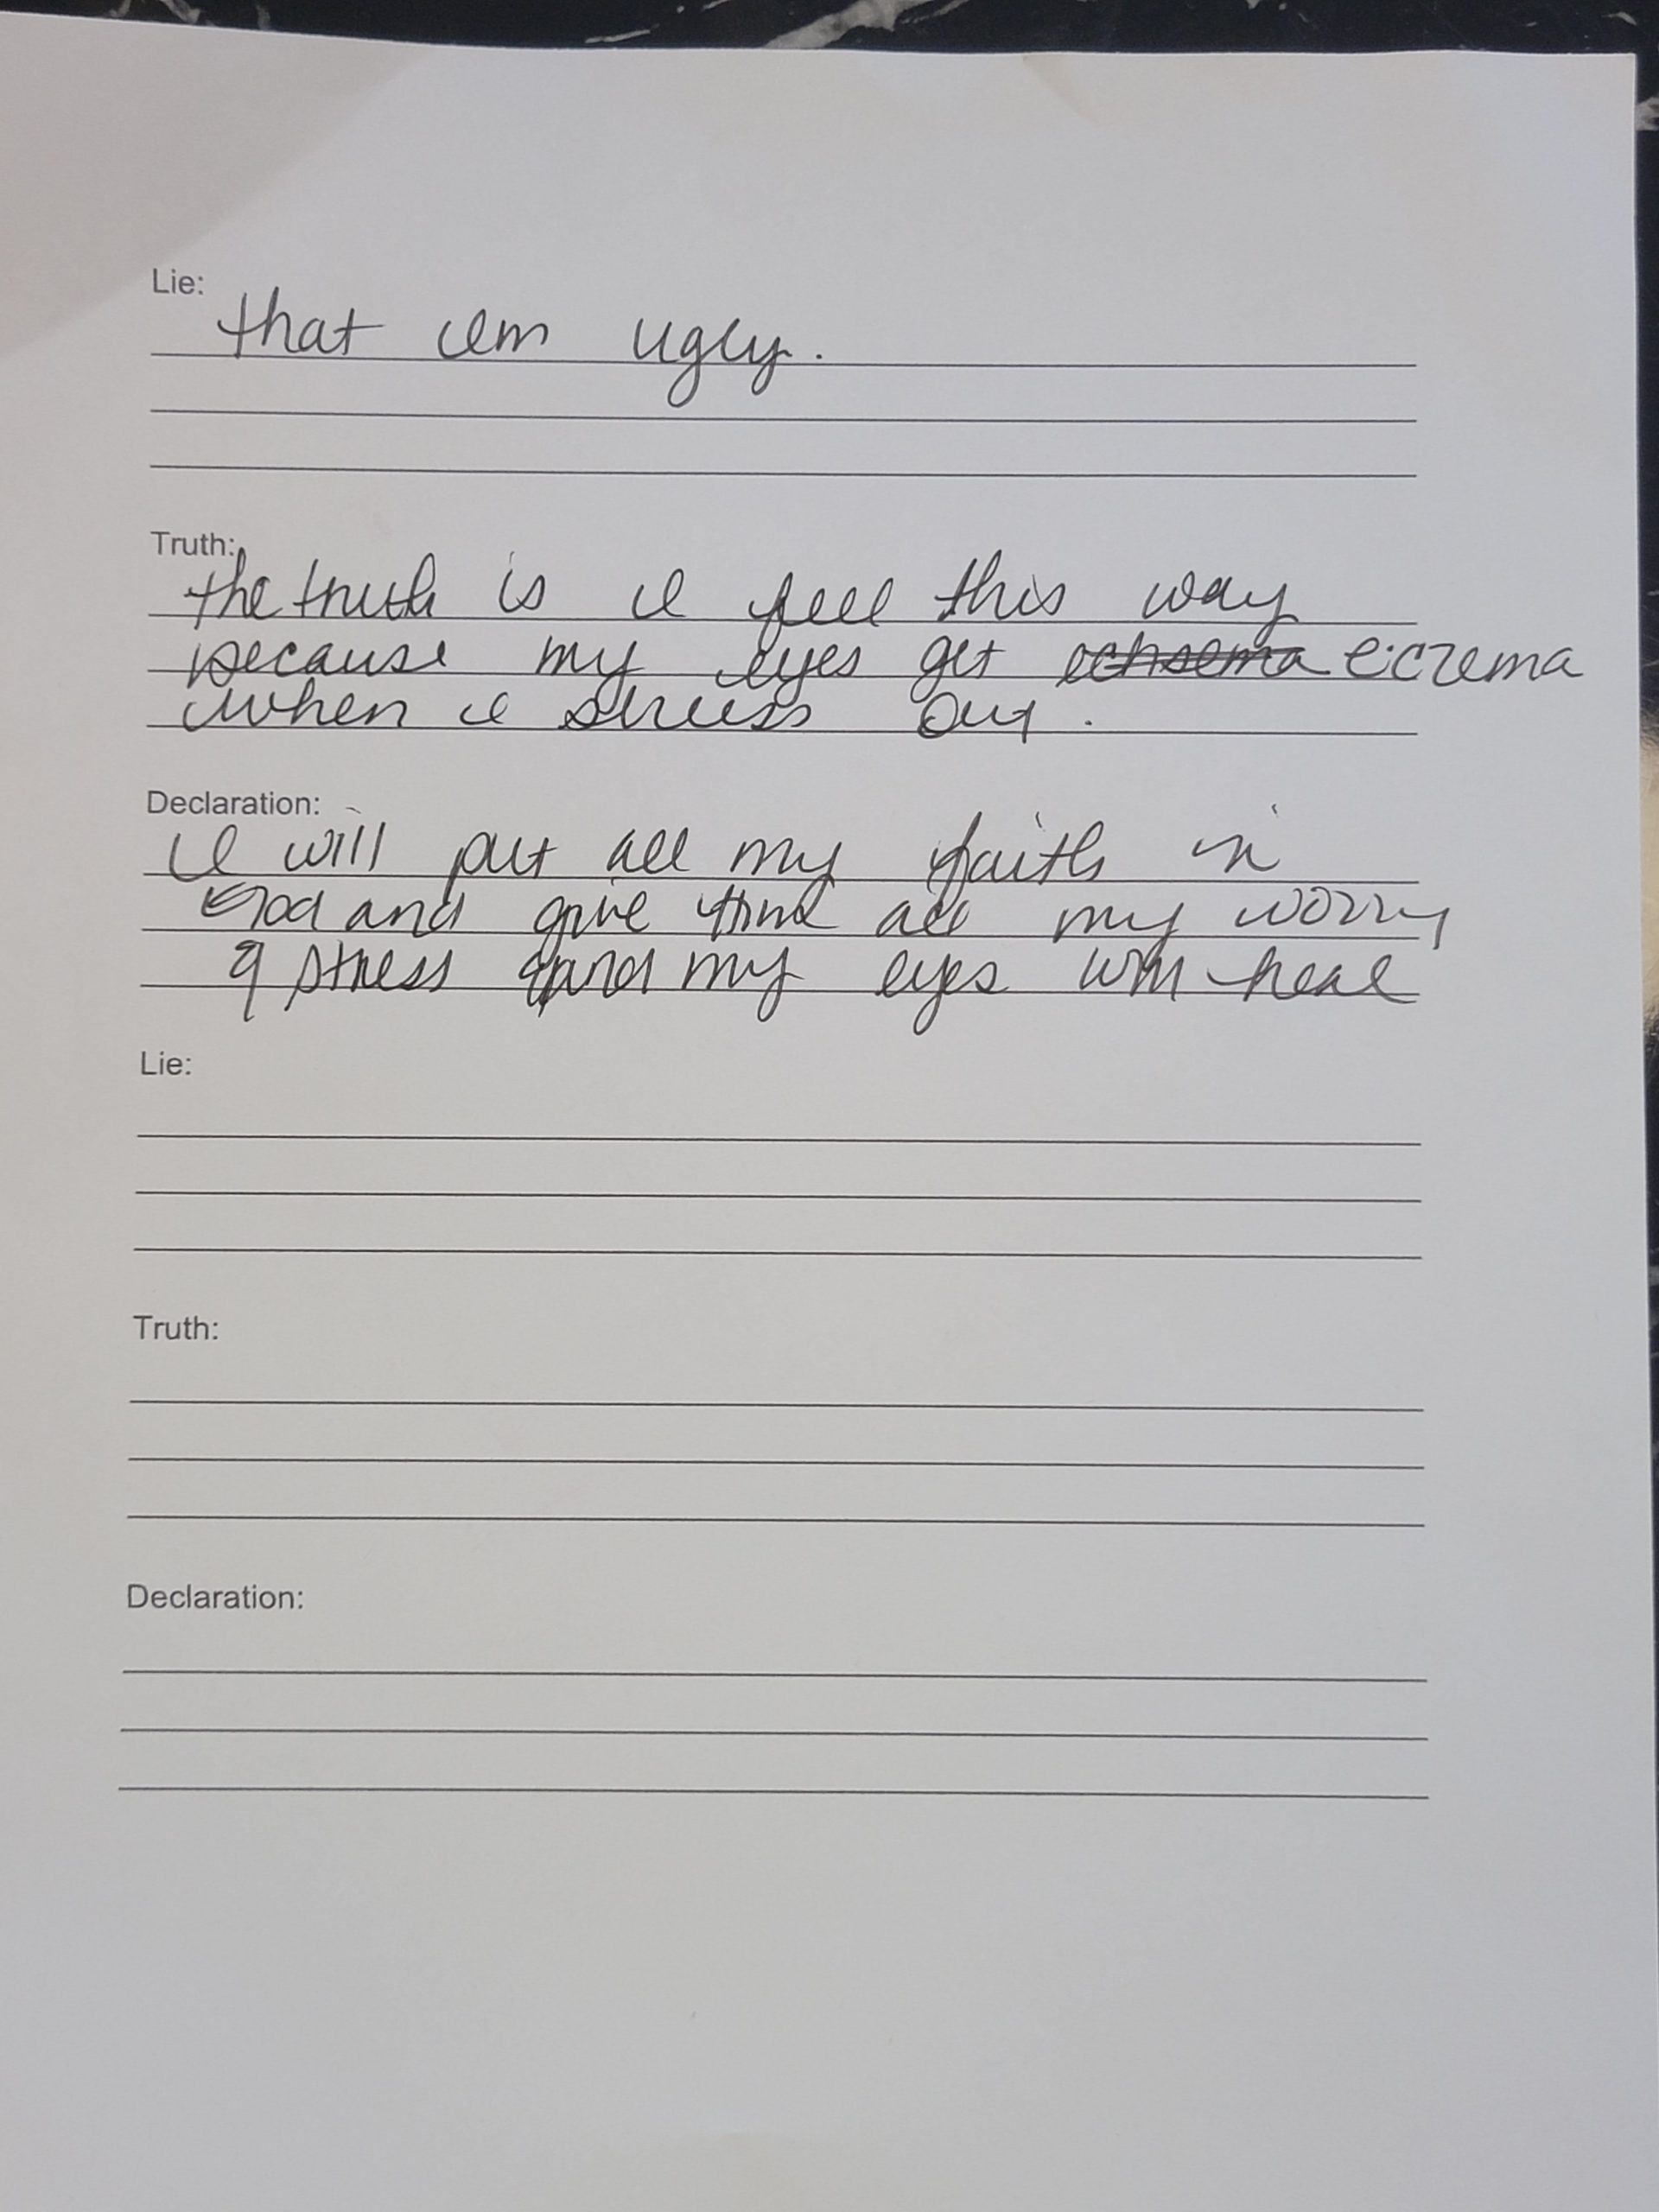 Lie:
that Im ugly.
Truth:
the truth is I feel this way
because my eyes get echsema eczema
when I stress out.
Declaration:
I will put all my faith in
God and give him all my worry
& stress and my eyes will heal
Lie:
Truth:
Declaration: